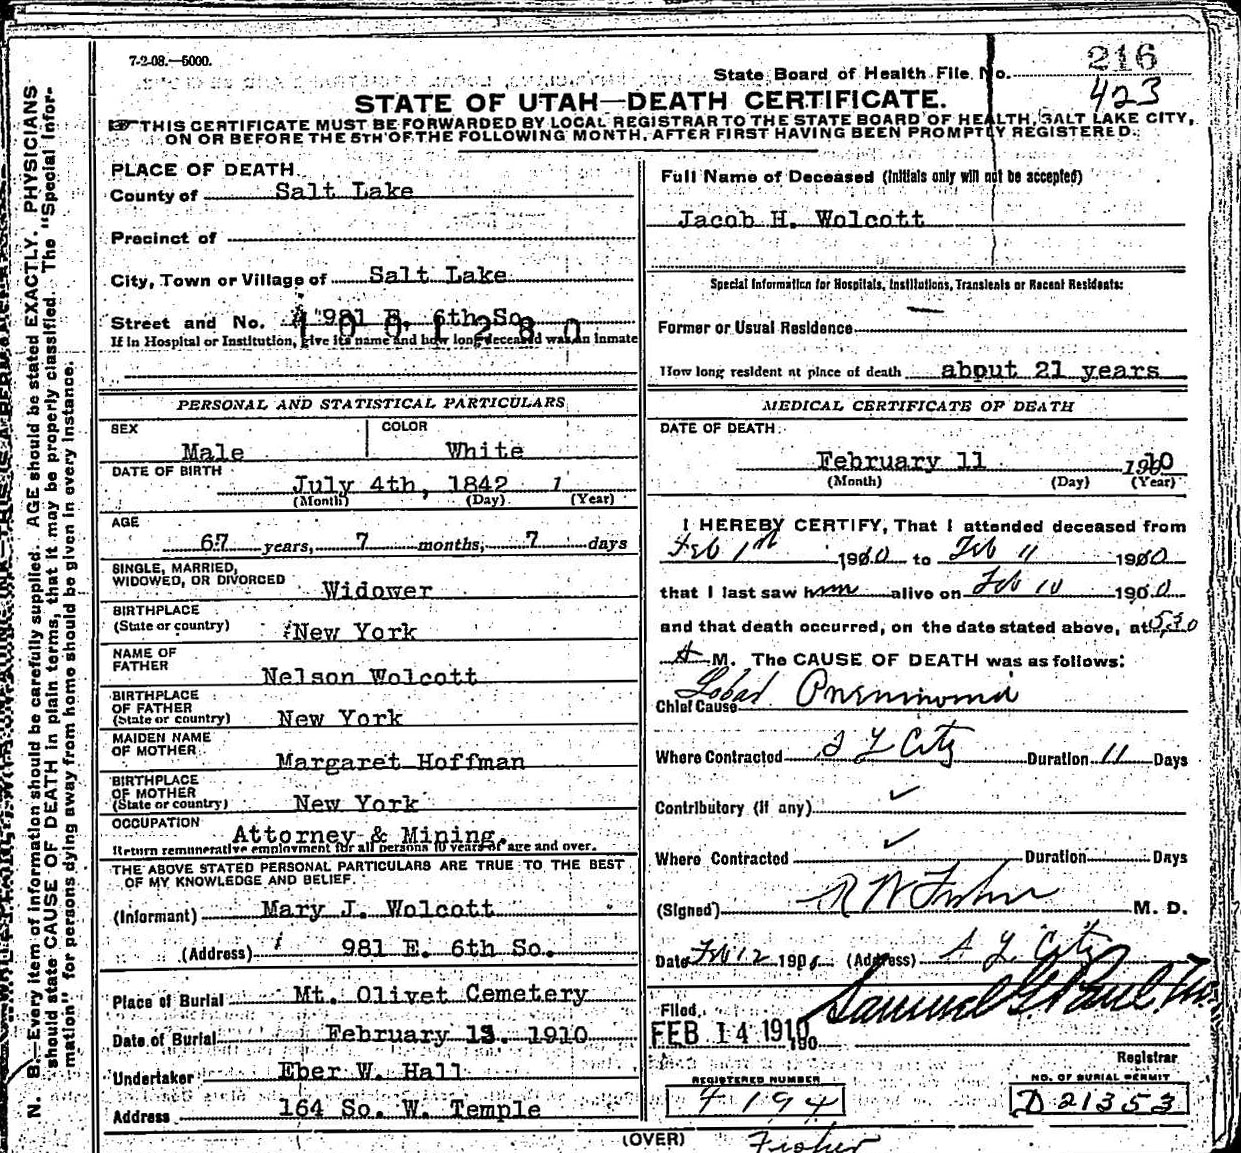 7-2-08.—5000.
State Board of Health File No. 216
423
STATE OF UTAH—DEATH CERTIFICATE.
☞ THIS CERTIFICATE MUST BE FORWARDED BY LOCAL REGISTRAR TO THE STATE BOARD OF HEALTH, SALT LAKE CITY,
ON OR BEFORE THE 5TH OF THE FOLLOWING MONTH, AFTER FIRST HAVING BEEN PROMPTLY REGISTERED.
PLACE OF DEATH
County of Salt Lake
Precinct of
City, Town or Village of Salt Lake
Street and No. 981 E. 6th So.
1001280
If in Hospital or Institution, give its name and how long deceased was an inmate
PERSONAL AND STATISTICAL PARTICULARS
SEX Male COLOR White
DATE OF BIRTH
July 4th, 1842 1
(Month) (Day) (Year)
AGE
67 years, 7 months, 7 days
SINGLE, MARRIED,
WIDOWED, OR DIVORCED Widower
BIRTHPLACE
(State or country) New York
NAME OF
FATHER Nelson Wolcott
BIRTHPLACE
OF FATHER
(State or country) New York
MAIDEN NAME
OF MOTHER Margaret Hoffman
BIRTHPLACE
OF MOTHER
(State or country) New York
OCCUPATION Attorney & Mining.
Return remunerative employment for all persons 10 years of age and over.
THE ABOVE STATED PERSONAL PARTICULARS ARE TRUE TO THE BEST
OF MY KNOWLEDGE AND BELIEF.
(Informant) Mary J. Wolcott
(Address) 981 E. 6th So.
Place of Burial Mt. Olivet Cemetery
Date of Burial February 13. 1910
Undertaker Eber W. Hall
Address 164 So. W. Temple
Full Name of Deceased (Initials only will not be accepted)
Jacob H. Wolcott
Special Information for Hospitals, Institutions, Transients or Recent Residents:
Former or Usual Residence
How long resident at place of death about 21 years
MEDICAL CERTIFICATE OF DEATH
DATE OF DEATH:
February 11 1910
(Month) (Day) (Year)
I HEREBY CERTIFY, That I attended deceased from
Feb 1st 1910 to Feb 11 1910
that I last saw him alive on Feb 10 1910
and that death occurred, on the date stated above, at 530
A M. The CAUSE OF DEATH was as follows:
Chief Cause Lobar Pneumonia
Where Contracted S L City Duration 11 Days
Contributory (if any) ✓
Where Contracted ✓ Duration Days
(Signed) R W Fisher M. D.
Date Feb 12 190 (Address) S L City
Samuel G. Paul
Filed, FEB 14 1910 190
Registrar
REGISTERED NUMBER
4194
NO. OF BURIAL PERMIT
D 21353
(OVER)
Fisher
N. B.—Every item of information should be carefully supplied. AGE should be stated EXACTLY. PHYSICIANS
should state CAUSE OF DEATH in plain terms, that it may be properly classified. The "Special Infor-
mation" for persons dying away from home should be given in every instance.